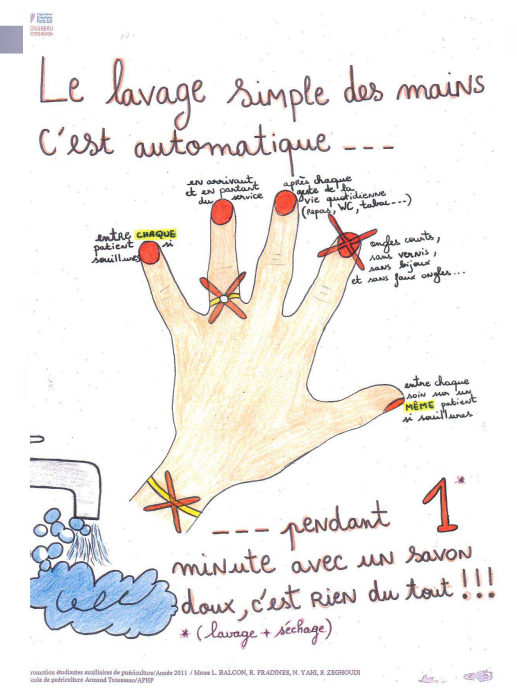 OUSSEAU
Le lavage simple des mains
C'est automatique ---
en arrivant,
et en partant
du service
après chaque
geste de la
vie quotidienne
(Repas, WC, tabac---)
entre CHAQUE
patient si
souillures
ongles courts,
sans vernis,
sans bijoux
et sans faux ongles...
entre chaque
soin sur un
MÊME patient
si souillures
--- pendant 1*
minute avec un savon
doux, c'est RIEN du tout!!!
* (lavage + séchage)
romotion étudiantes auxiliaires de puériculture/Année 2011 / Mmes L. BALCON, R. PRADINES, N. YAHI, S. ZEGHOUDI
cole de puériculture Armand Trousseau/APHP